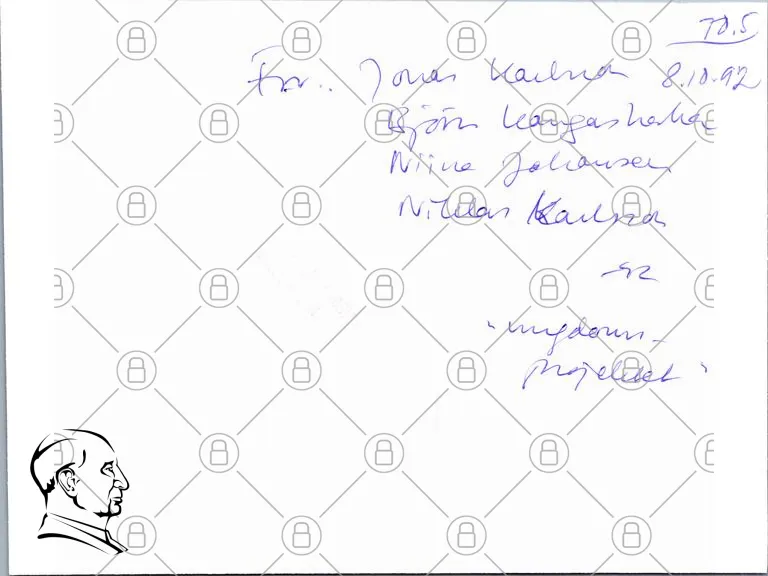 TD.5
Frv.. Jonas Karlsson 8.10.92
Björn Kangashaka
Niina Johansen
Niklas Karlsson
-92
"ungdoms-
projektet"